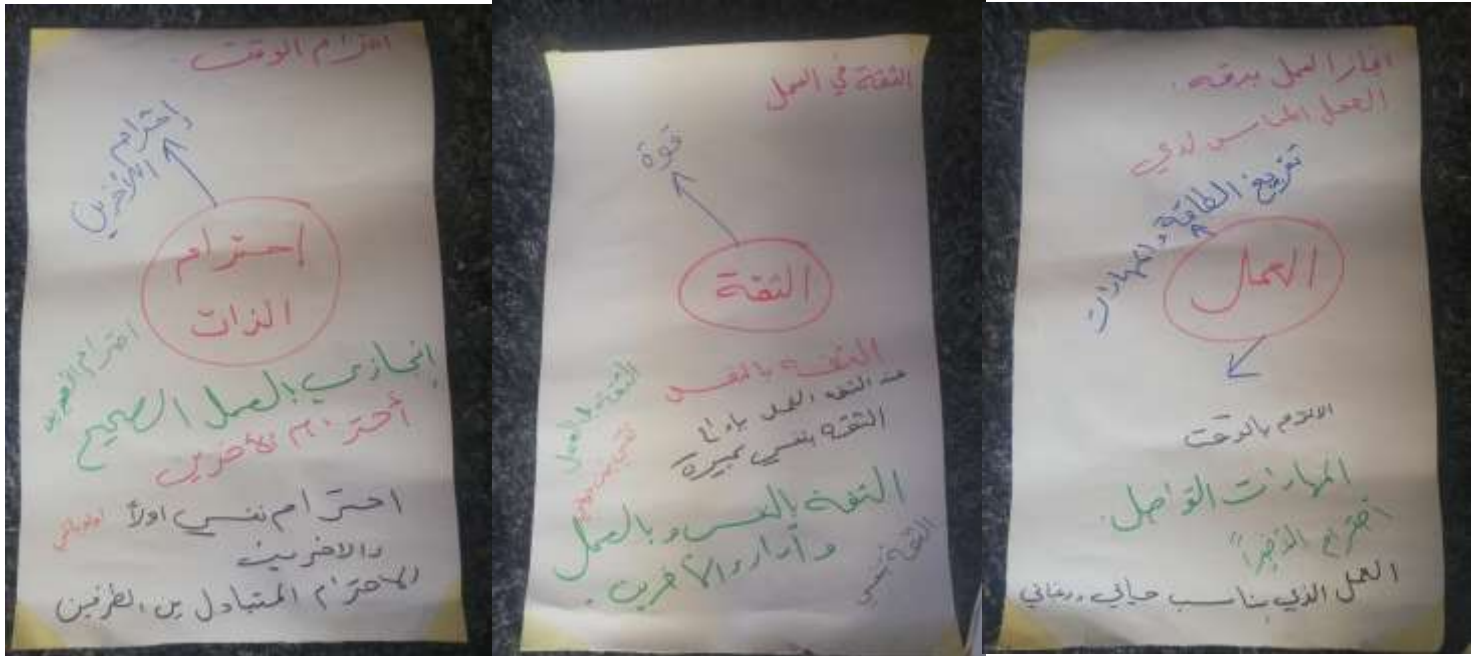 احترام الوقت
إحترام
الآخرين
إحترام
الذات
احترام
إنجازي بالعمل الصحيح
أحترام الأخرين
احترام نفسي اولاً
والاخرين
الاحترام المتبادل بين الطرفين
الثقة في العمل
قوة
الثقة
الثقة بالنفس
الثقة بنفسي كبيرة
الثقة بالعمل
الثقة بالنفس وبالعمل
الثقة بنفسي
انجاز العمل بدقه
العمل المناسب لدي
تفريغ الطاقة والمهارات
العمل
الالتزم بالوقت
المهارات التواصل
العمل الذي يناسب حياتي